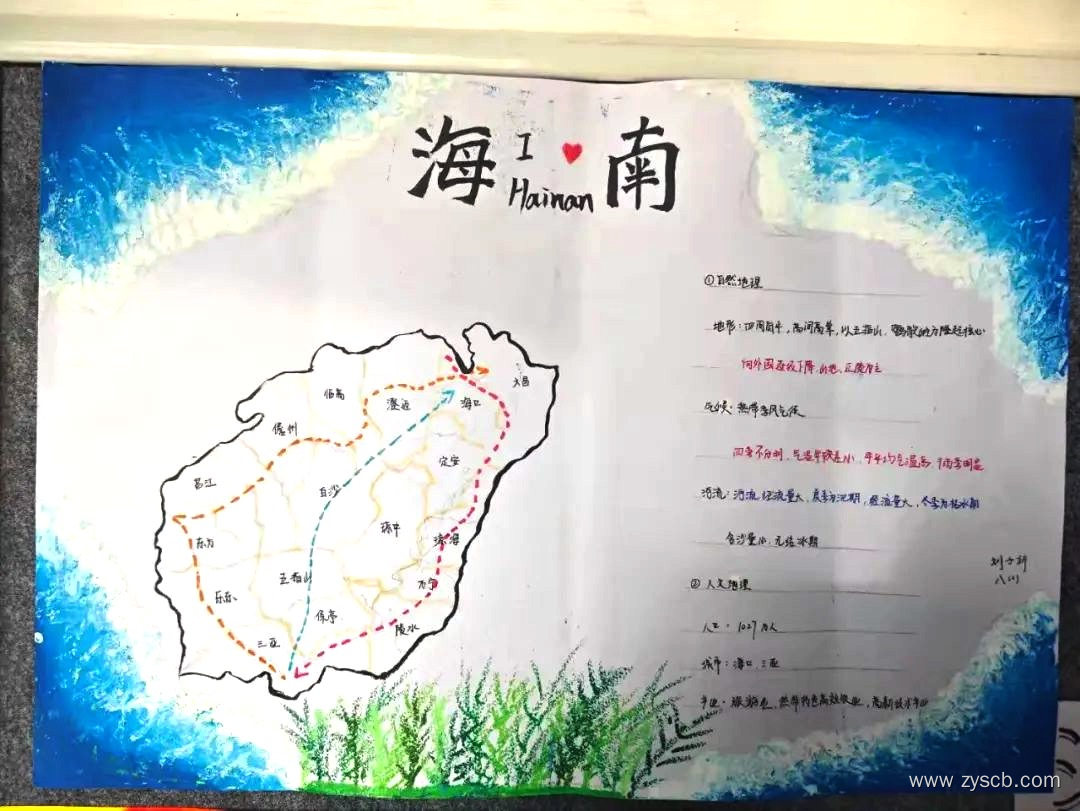 海 I ♥ 南
Hainan
①自然地理
地形：四周低平，中间高耸，以五指山、鹦歌岭为隆起核心
向外围逐级下降，山地、丘陵为主
气候：热带季风气候
四季不分明，气温年较差小，年平均气温高，干雨季明显
河流：河流径流量大，夏季为汛期，径流量大，冬季为枯水期
含沙量小，无结冰期
②人文地理
人口：1027万人
城市：海口、三亚
产业：旅游业，热带特色高效农业，高新技术产业
刘子轩
八(1)
文昌
临高
澄迈
海口
儋州
定安
昌江
白沙
琼中
琼海
东方
五指山
万宁
乐东
保亭
陵水
三亚
www.zyscb.com